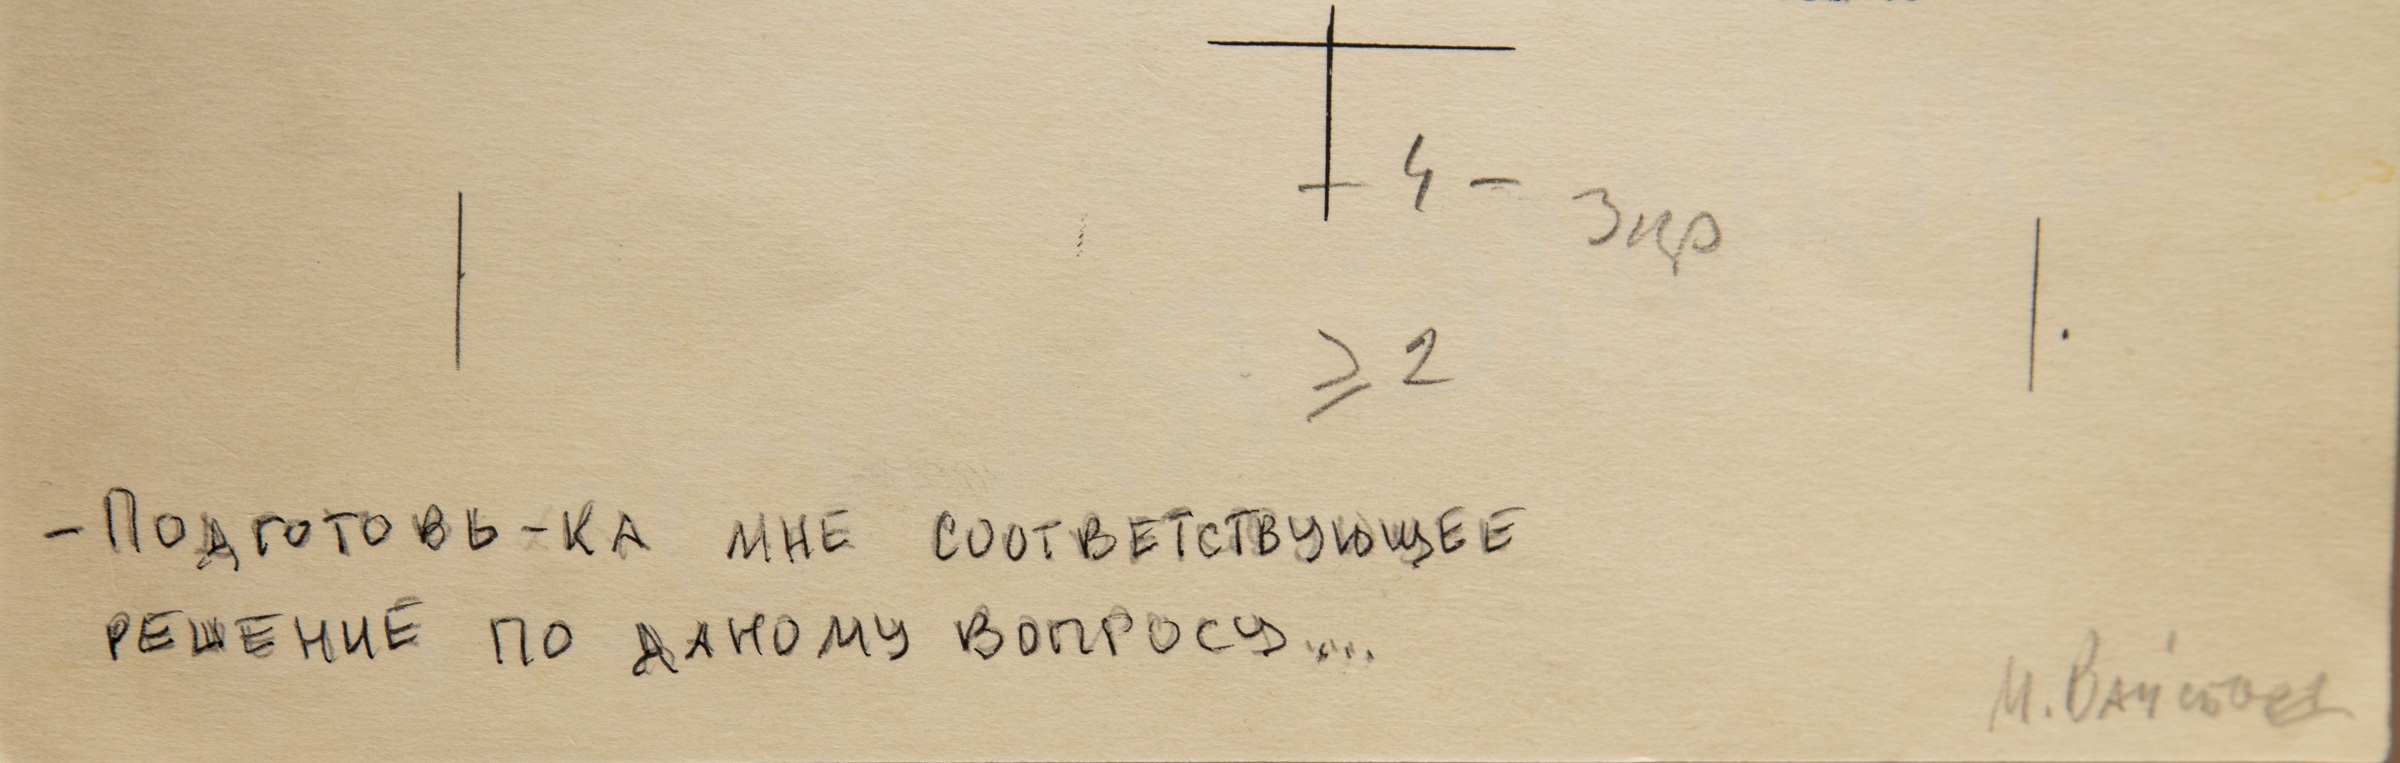 4 -
≥ 2
- Подготовь-ка мне соответствующее
решение по даному вопросу...
М. Вайсборд